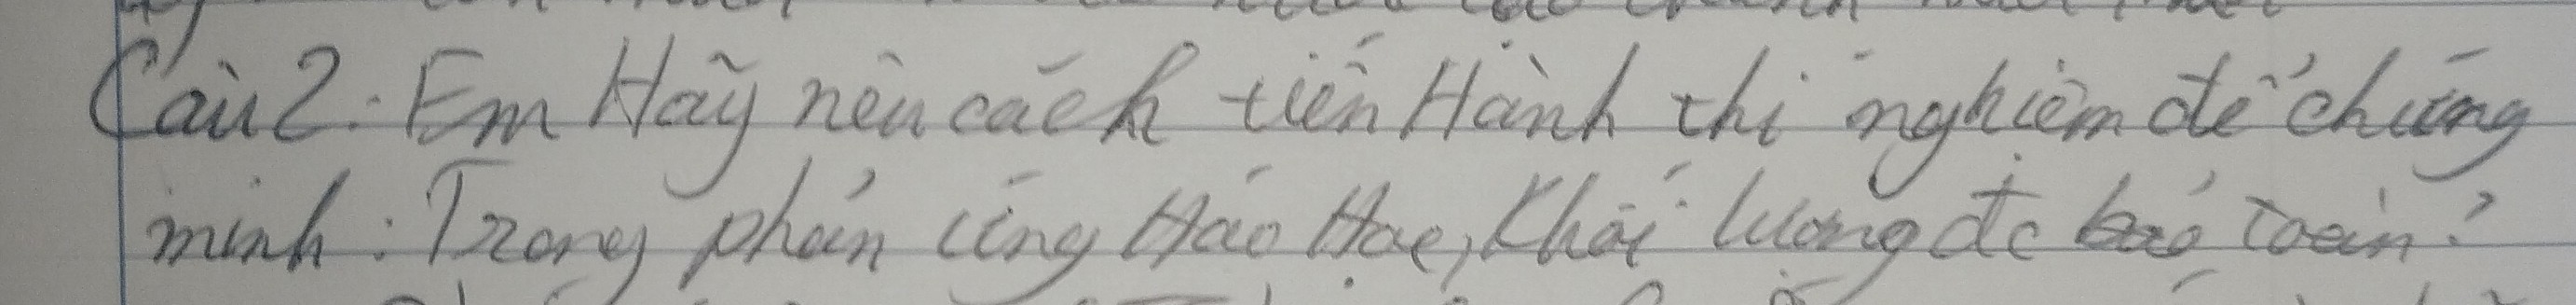 Câu 2: Em Hãy nêu cách tiến Hành thí nghiệm để chứng
minh: Trong phản ứng Hóa Học, Khối lượng đc bảo toàn?